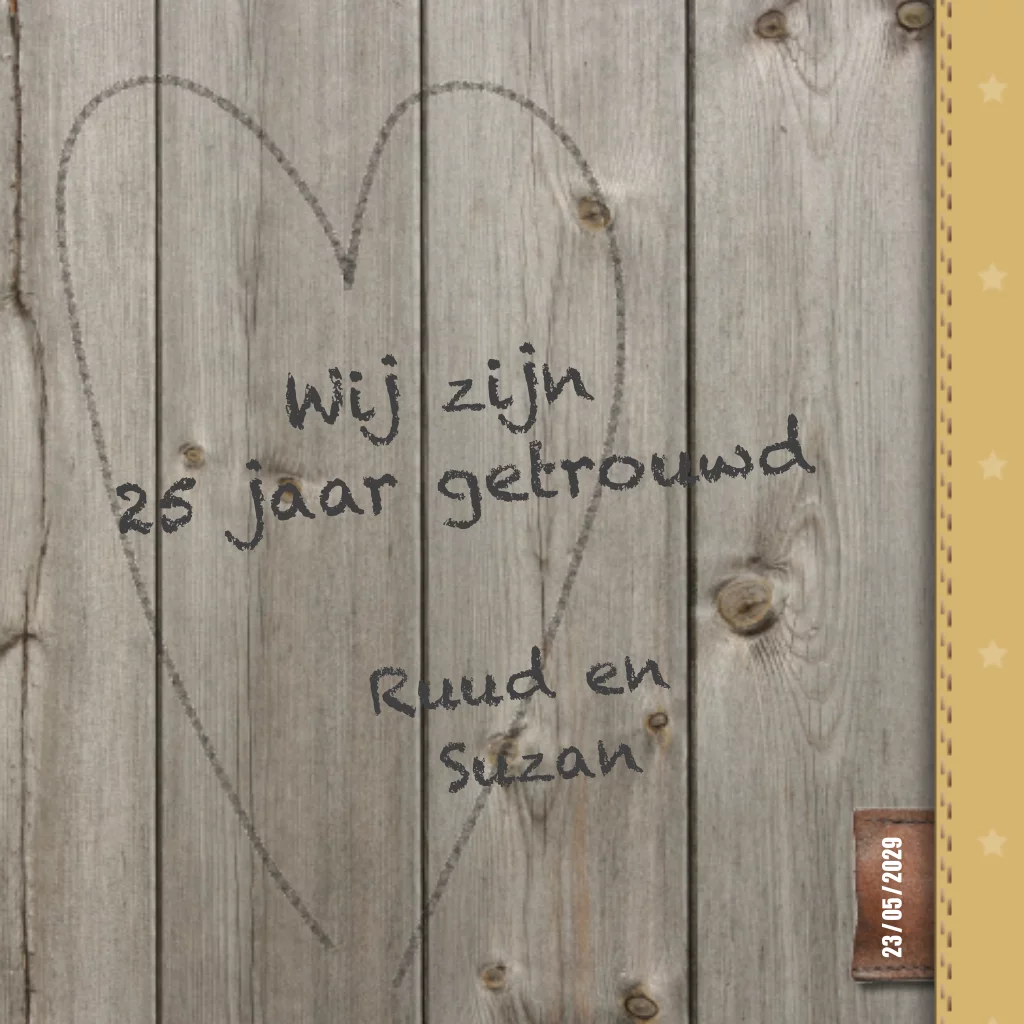 Wij zijn
25 jaar getrouwd
Ruud en
Suzan
23/05/2029